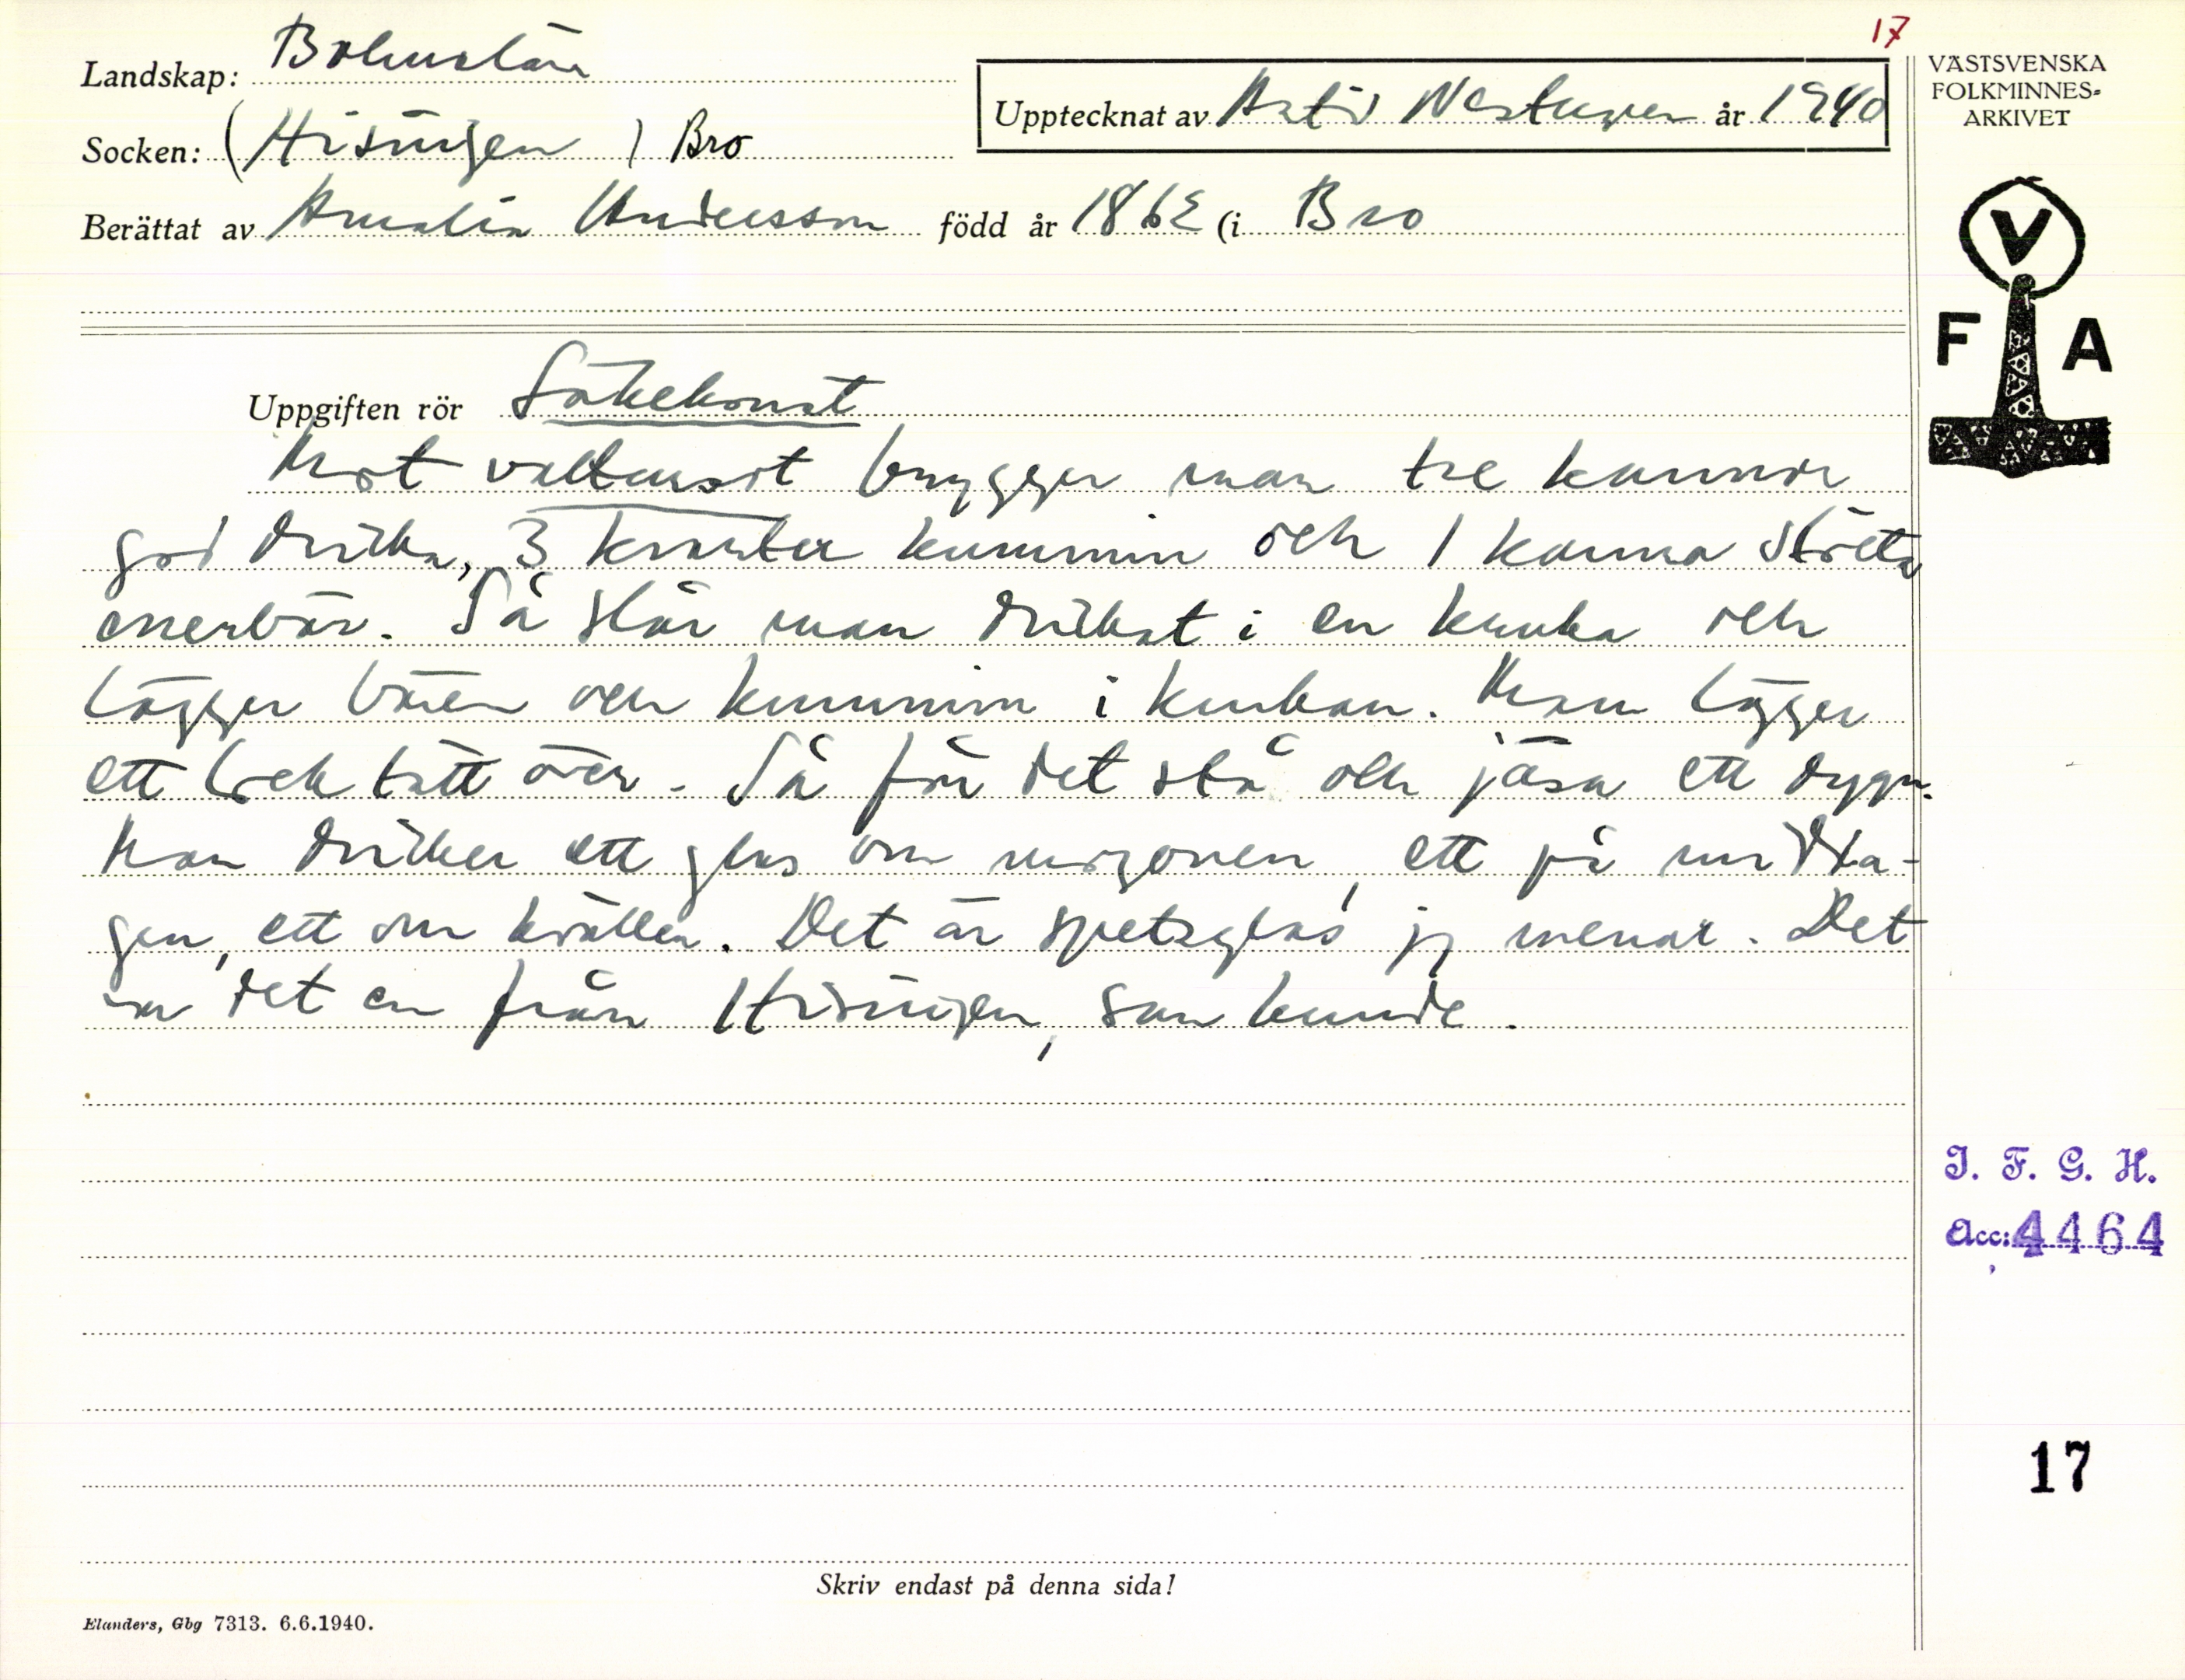 17
Landskap: Bohuslän
Socken: (Hisingen) Bro
Upptecknat av Arvid Westergren år 1940
Berättat av Amalia Andersson född år 1862 (i Bro
VÄSTSVENSKA
FOLKMINNES-
ARKIVET
V
F A
Uppgiften rör Läkekonst
Mot vattusot brygger man tre kannor
god dricka, 3 kvarter kummin och 1 kanna stötta
enerbär. Så slår man drickat i en kruka och
lägger bären och kummin i krukan. Man lägger
ett lock tätt över. Så får det stå och jäsa ett dygn.
Man dricker ett glas om morgonen, ett på midda-
gen, ett om kvällen. Det är spetsglas jag menar. Det
var det en från Hisingen, som kunde.
I. F. G. H.
Acc: 4464
17
Skriv endast på denna sida!
Elanders, Gbg 7313. 6.6.1940.